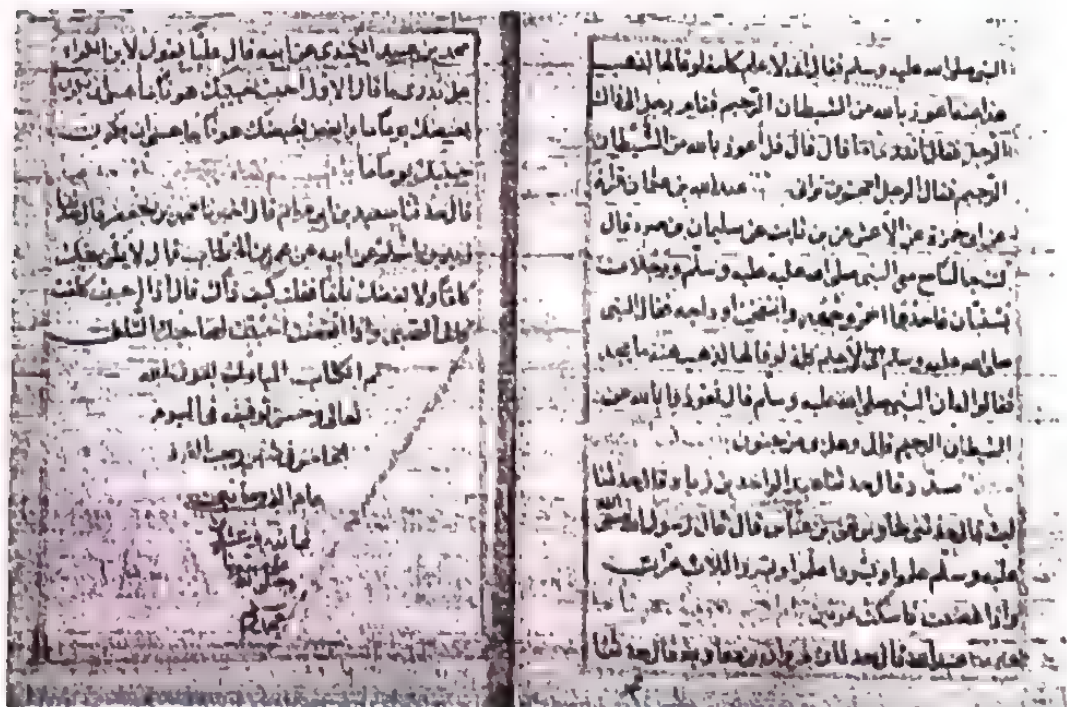 النبي صلى الله عليه وسلم فقال إني لأعلم كلمة لو قالها لذهب
هذا عنه أعوذ بالله من الشيطان الرجيم فقام رجل إلى ذاك
الرجل فقال تدري ما قال قال قل أعوذ بالله من الشيطان
الرجيم فقال الرجل أمجنون تراني عبد الله بن عثمان قراءة
عن أبي حمزة عن الأعمش عن عدي بن ثابت عن سليمان بن صرد قال
كنت جالسا مع النبي صلى الله عليه وسلم ورجلان
يستبان فأحدهما احمر وجهه وانتفخت أوداجه فقال النبي
صلى الله عليه وسلم إني لأعلم كلمة لو قالها لذهب عنه ما يجد
فقالوا له إن النبي صلى الله عليه وسلم قال تعوذ بالله من
الشيطان الرجيم قال وهل بي من جنون
مسدد قال حدثنا عبد الواحد بن زياد قال حدثنا
ليث قال حدثني طاوس عن ابن عباس قال قال رسول الله صلى الله
عليه وسلم علموا ويسروا علموا ويسروا ثلاث مرات
وإذا غضبت فاسكت مرتين
عبد الله قال حدثنا مروان بن معاوية قال حدثنا
محمد بن عبيد الكندي عن أبيه قال عليا يقول لابن الكواء
هل تدري ما قال الأول أحبب حبيبك هونا ما عسى أن يكون
بغيضك يوما ما وأبغض بغيضك هونا ما عسى أن يكون
حبيبك يوما ما
قال حدثنا سعيد بن أبي مريم قال أخبرنا محمد بن جعفر قال حدثنا
زيد بن أسلم عن أبيه عن عمر بن الخطاب قال لا يكن حبك
كلفا ولا بغضك تلفا فقلت كيف ذاك قال إذا أحببت كلفت
كلف الصبي وإذا أبغضت أحببت لصاحبك التلف
تم الكتاب المبارك بعون الله
تعالى وحسن توفيقه في اليوم
الخامس في شهر رجب الفرد